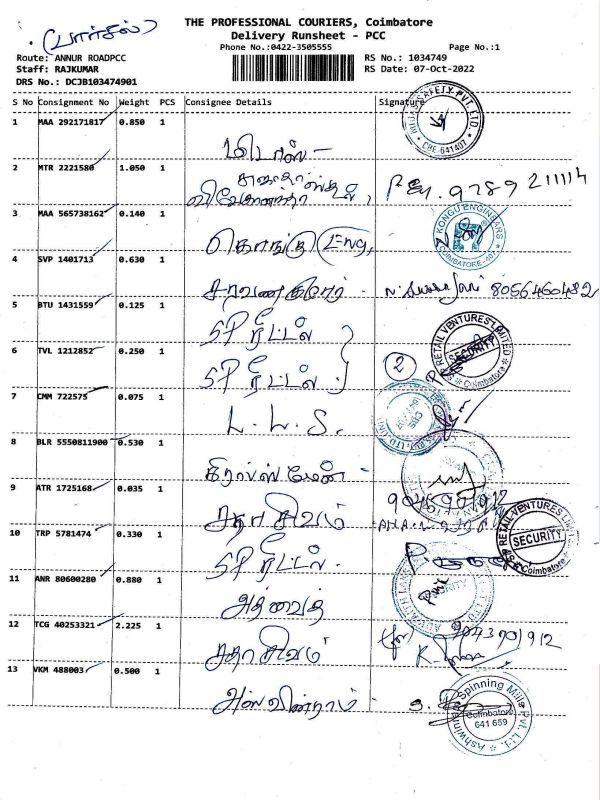 (பார்சல்)
THE PROFESSIONAL COURIERS, Coimbatore
Delivery Runsheet - PCC
Phone No.:0422-3505555 Page No.:1
Route: ANNUR ROADPCC RS No.: 1034749
Staff: RAJKUMAR RS Date: 07-Oct-2022
DRS No.: DCJB103474901
S No Consignment No Weight PCS Consignee Details Signature
1 MAA 292171817 0.850 1
SAFETY PVT. LTD. CBE-641407
2 MTR 2221580 1.050 1 9789 211114
3 MAA 565738162 0.140 1 கொங்கு Eng,
KONGU ENGINEERS COIMBATORE
4 SVP 1401713 0.630 1 சரவணகுமார் - 8056460482
5 BTU 1431559 0.125 1 SP ரீட்டல்
6 TVL 1212852 0.250 1 SP ரீட்டல் 2
RETAIL VENTURES LIMITED SECURITY Coimbatore
7 CMM 722575 0.075 1 L. L. S.
8 BLR 5550811900 0.530 1
9 ATR 1725168 0.035 1 சதாசிவம்
10 TRP 5781474 0.330 1 SP ரீட்டல்
RETAIL VENTURES LIMITED SECURITY Coimbatore
11 ANR 80600280 0.880 1 அத்வைத்
12 TCG 40253321 2.225 1 சதாசிவம் 9043701912
13 VKM 488003 0.500 1
Ashwin Spinning Mills Pvt. Ltd. Coimbatore 641 659